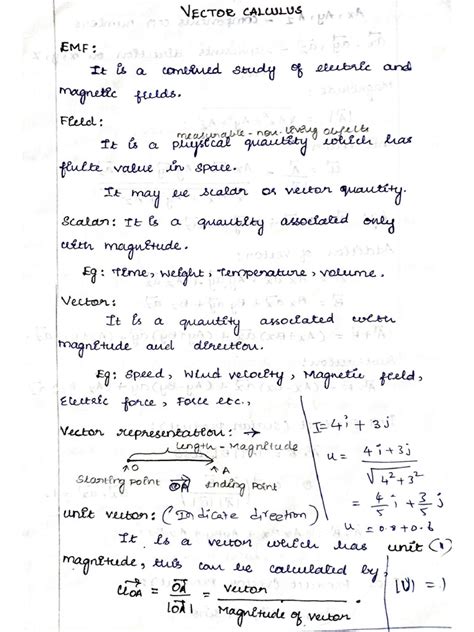 VECTOR CALCULUS
EMF:
It is a combined study of electric and
magnetic fields.
Field:
measurable - non living objects
It is a physical quantity which has
finite value in space.
It may be scalar or vector quantity.
Scalar: It is a quantity associated only
with magnitude.
Eg: Time, Weight, Temperature, volume.
Vector:
It is a quantity associated with
magnitude and direction.
Eg: Speed, Wind velocity, Magnetic field,
Electric force, Force etc.,
Vector representation: →
Length - Magnitude
O A
Starting point OA⃗ ending point
unit vector: (Indicate direction)
It is a vector which has unit (1)
magnitude, this can be calculated by,
u⃗OA = OA⃗ / |OA⃗| = vector / Magnitude of vector.
I = 4i + 3j
u = 4i + 3j / √4² + 3²
= 4/5 i + 3/5 j
u = 0.8 + 0.6
|U| = 1